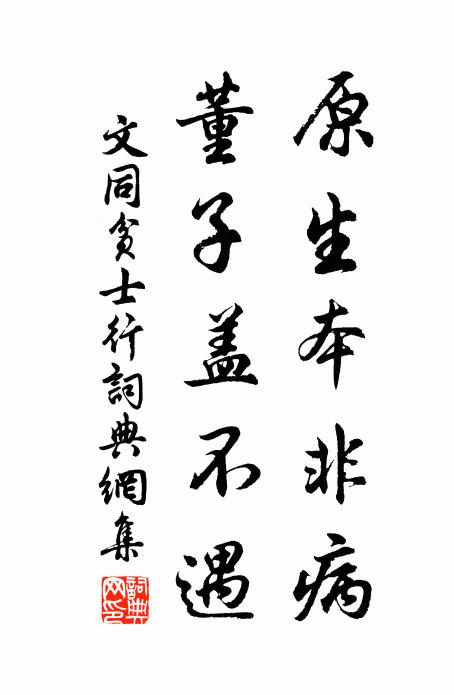 原生本非病
董子盖不遇
文同贫士行詞典網集
詞典
网印